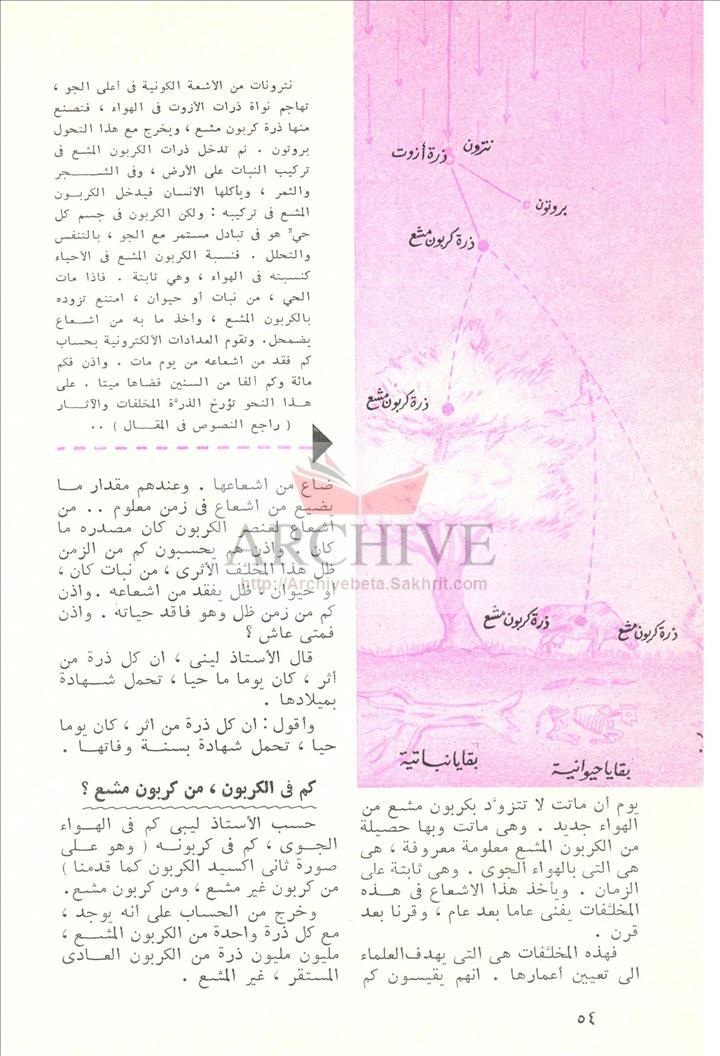 نترونات من الأشعة الكونية في أعلى الجو ،
تهاجم نواة ذرات الأزوت في الهواء ، فتصنع
منها ذرة كربون مشع ، ويخرج مع هذا التحول
بروتون . ثم تدخل ذرات الكربون المشع في
تركيب النبات على الأرض ، وفي الشـــجر
والثمر ، ويأكلها الانسان فيدخل الكربـون
المشع في تركيبه : ولكن الكربون في جسم كل
حيّ هو في تبادل مستمر مع الجو ، بالتنفس
والتحلل . فنسبة الكربون المشع في الأحياء
كنسبته في الهواء ، وهي ثابتة . فاذا مات
الحي ، من نبات أو حيوان ، امتنع تزوده
بالكربون المشع ، وأخذ ما به من اشـــعاع
يضمحل. وتقوم العدادات الألكترونية بحساب
كم فقد من اشعاعه من يوم مات . واذن فكم
مائة وكم ألفا من السنين قضاها ميتا . على
هـذا النحو تؤرخ الذرّة المخلفات والآثـار
( راجع النصوص في المقـال ) ..
نترون
ذرة أزوت
بروتون
ذرة كربون مشع
ذرة كربون مشع
ذرة كربون مشع
ذرة كربون مشع
بقايا نباتية
بقايا حيوانية
يوم أن ماتت لا تتزوّد بكربون مشـع من
الهواء جديد . وهي ماتت وبها حصيلة
من الكربون المشع معلومة معروفة ، هي
هي التي بالهواء الجوي . وهي ثابتة على
الزمان . ويأخذ هذا الاشعاع في هـــذه
المخلّفات يفنى عاما بعد عام ، وقرنا بعد
قرن .
فهذه المخلـّفات هي التي يهدف العلماء
الى تعيين أعمارها . انهم يقيسون كم
ضاع من اشعاعها . وعندهم مقدار مـا
يضيع من اشعاع في زمن معلوم .. من
اشعاع لعنصر الكربون كان مصدره ما
كان . واذن هم يحسبون كم من الزمن
ظل هذا المخلّف الأثري ، من نبات كان ،
أو حيوان ، ظل يفقد من اشعاعه . واذن
كم من زمن ظل وهو فاقد حياته . واذن
فمتى عاش ؟
قال الأستاذ ليبي ، ان كل ذرة من
أثر ، كان يوما ما حيا ، تحمل شــهادة
بميلادها .
وأقول : ان كل ذرة من اثر ، كان يوما
حيا ، تحمل شهادة بسنـة وفاتهـا .
كم في الكربون ، من كربون مشع ؟
حسب الأستاذ ليبي كم في الهـواء
الجـوي ، كم في كربونـه ( وهو علـى
صورة ثاني اكسيد الكربون كما قدمنا )
من كربون غير مشع ، ومن كربون مشع.
وخرج من الحساب على أنه يوجد ،
مع كل ذرة واحدة من الكربون المشـــع ،
مليون مليون ذرة من الكربون العـادي
المستقر ، غير المشع .
ARCHIVE
http://Archivebeta.Sakhrit.com
٥٤